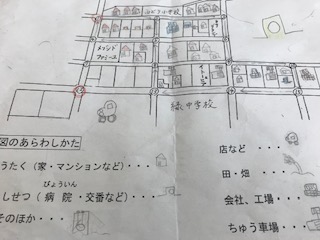 小学校
メゾンド
ファミーユ
緑中学校
図のあらわしかた
うたく（家・マンションなど）・・・
びょういん
しせつ（病院・交番など）・・・
そのほか・・・
店など・・・
田・畑・・・
会社、工場・・・
ちゅう車場・・・